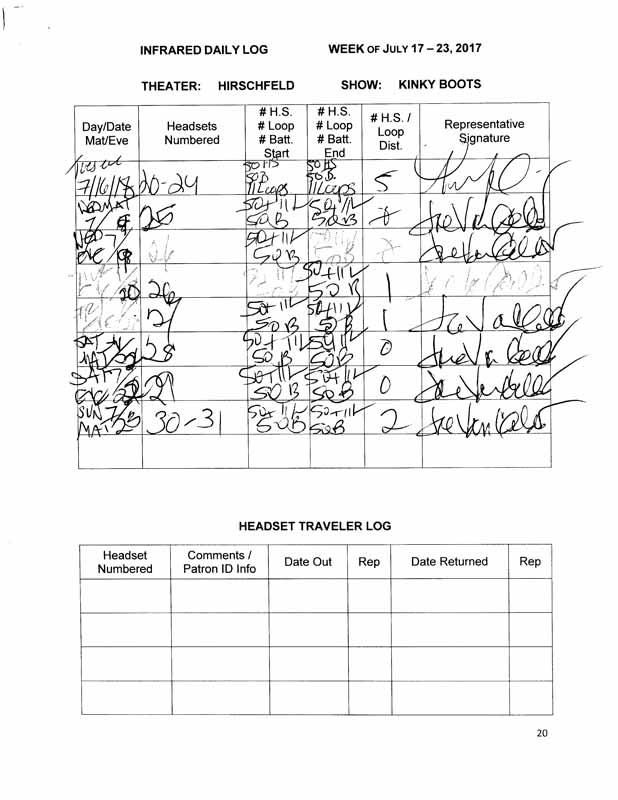 INFRARED DAILY LOG WEEK OF JULY 17 – 23, 2017
THEATER: HIRSCHFELD SHOW: KINKY BOOTS
Day/Date Mat/Eve Headsets Numbered # H.S. # Loop # Batt. Start # H.S. # Loop # Batt. End # H.S. / Loop Dist. Representative Signature
20-24 50 HS 50B 11 Loops 50 HS 50B 11 Loops 5
WED MAT 25 50+11L 50B 50+11L 50B
WED EVE 26 50+11L 50B
20 26 50+11L 50B 1
50+11L 50B 50+11L 50B 1
SAT MAT 28 50+11L 50B 50B 0
SAT EVE 29 50+11L 50B 50+11L 50B 0
SUN MAT 30-31 50+11L 50B 50+11L 50B 2
HEADSET TRAVELER LOG
Headset Numbered Comments / Patron ID Info Date Out Rep Date Returned Rep
20